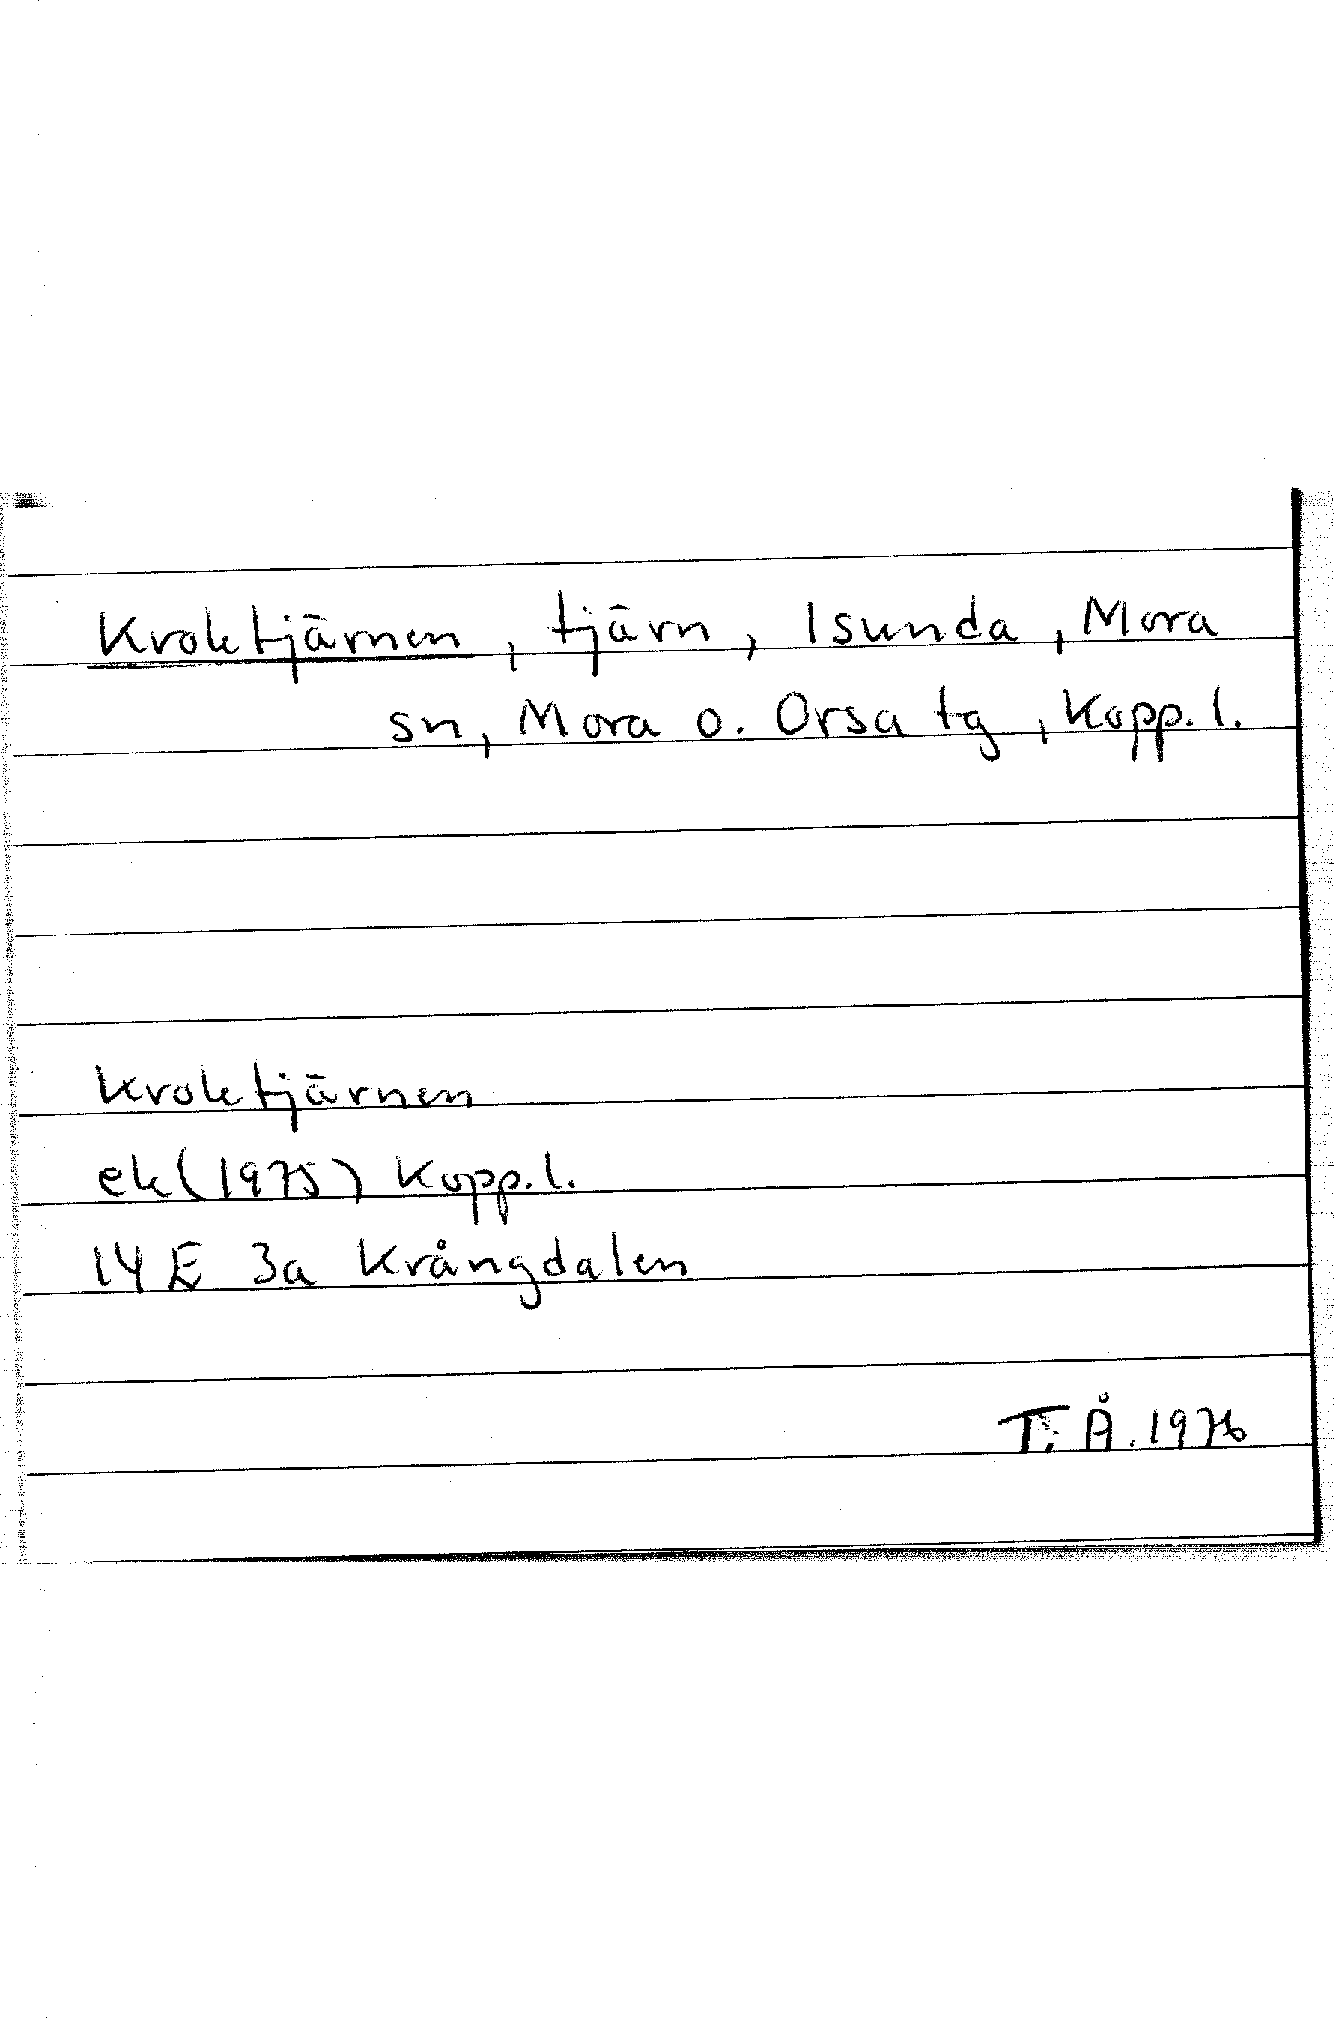 Kroktjärnen, tjärn, Isunda, Mora
sn, Mora o. Orsa tg, Kopp. l.
Kroktjärnen
ek (1975) Kopp. l.
14 E 3a Krångdalen
T. Å. 1976